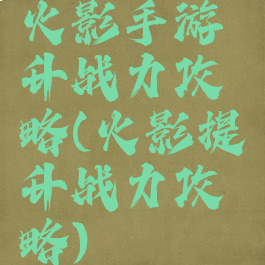 火影手游
升战力攻
略(火影提
升战力攻
略)